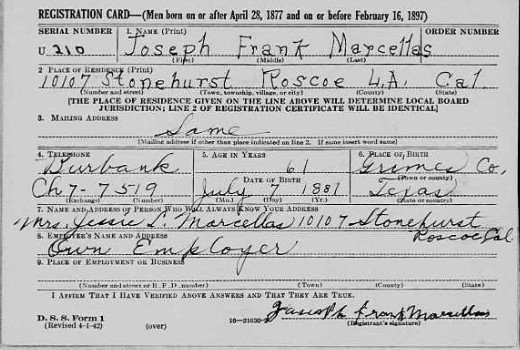 REGISTRATION CARD—(Men born on or after April 28, 1877 and on or before February 16, 1897)
SERIAL NUMBER 1. NAME (Print) ORDER NUMBER
U 210 Joseph Frank Marcellas
(First) (Middle) (Last)
2 PLACE OF RESIDENCE (Print)
10107 Stonehurst Roscoe L.A. Cal
(Number and street) (Town, township, village, or city) (County) (State)
[THE PLACE OF RESIDENCE GIVEN ON THE LINE ABOVE WILL DETERMINE LOCAL BOARD
JURISDICTION; LINE 2 OF REGISTRATION CERTIFICATE WILL BE IDENTICAL]
3. MAILING ADDRESS
Same
[Mailing address if other than place indicated on line 2. If same insert word same]
4. TELEPHONE 5. AGE IN YEARS 6. PLACE OF BIRTH
Burbank 61 Grimes Co,
DATE OF BIRTH (Town or county)
Ch 7-7519 July 7 1881 Texas
(Exchange) (Number) (Mo.) (Day) (Yr.) (State or country)
7. NAME AND ADDRESS OF PERSON WHO WILL ALWAYS KNOW YOUR ADDRESS
Mrs. Jessie L. Marcellas 10107 Stonehurst
8. EMPLOYER'S NAME AND ADDRESS Roscoe Cal
Own Employer
9. PLACE OF EMPLOYMENT OR BUSINESS
(Number and street or R. F. D. number) (Town) (County) (State)
I AFFIRM THAT I HAVE VERIFIED ABOVE ANSWERS AND THAT THEY ARE TRUE.
D. S. S. Form 1 Frank Marsellas
(Revised 4-1-42) (over) 16—21630-2 (Registrant's signature)